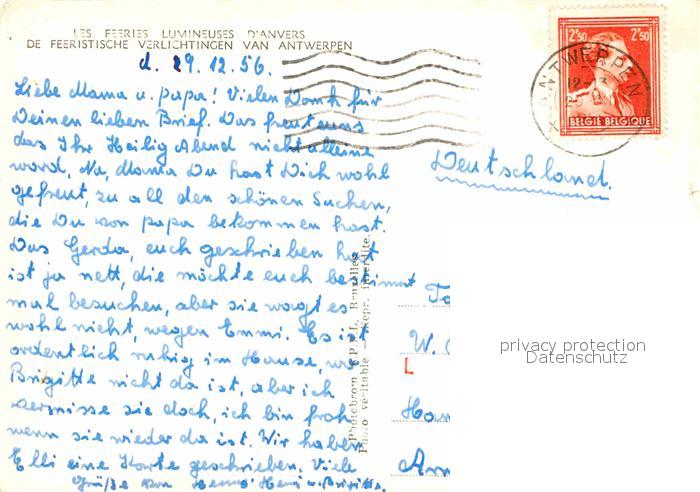 LES FEERIES LUMINEUSES D'ANVERS
DE FEERISTISCHE VERLICHTINGEN VAN ANTWERPEN
d. 29.12.56.
Liebe Mama u. papa! Vielen Dank für
Deinen lieben Brief. Das freut uns
das Ihr Heilig Abend nicht alleine
ward. Na, Mama Du hast Dich wohl
gefreut, zu all den schönen Suchen,
die Du von papa bekommen hast.
Das Gerda, euch geschrieben hat
ist ja nett, die möchte euch bestimmt
mal besuchen, aber sie wagt es
wohl nicht, wegen Emmi. Es ist
ordentlich ruhig im Hause, wo
Brigitte nicht da ist, aber ich
vermisse sie doch, ich bin froh
wenn sie wieder da ist. Wir haben
Elli eine Karte geschrieben. Viele
Grüße von Heini u. Brigitte.
Photo véritable - Repr. interdite.
ANTWERPEN
2F50 2F50
BELGIE BELGIQUE
Deutschland.
W.
L
Han
privacy protection
Datenschutz